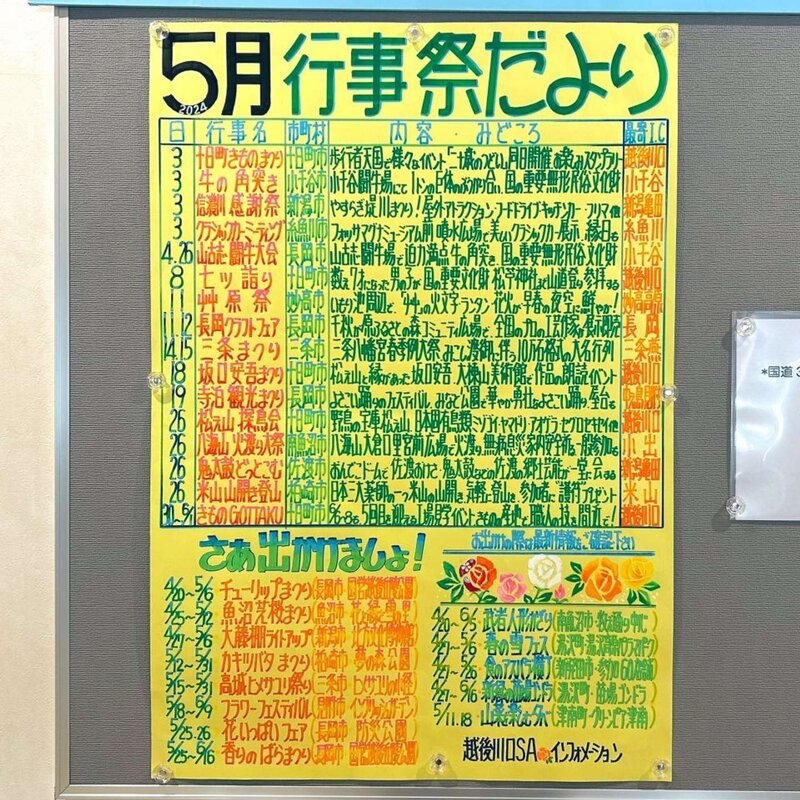 5月 行事祭だより
2024
日 行事名 市町村 内容・みどころ 最寄I.C
3 十日町きものまつり 十日町市 歩行者天国で様々なイベント 同日開催 お楽しみスタンプラリー 越後川口
3 牛の角突き 小千谷市 小千谷闘牛場にて1トンの巨体のぶつかり合い、国の重要無形民俗文化財 小千谷
3 信濃川感謝祭 新潟市 やすらぎ堤川まつり!屋外アトラクション・フードドライブ・キッチンカー・フリマ他 新潟亀田
3 クラシックカーミーティング 糸魚川市 フォッサマグナミュージアム前噴水広場で美しいクラシックカー展示、縁日も 糸魚川
4.26 山古志闘牛大会 長岡市 山古志闘牛場で迫力満点牛の角突き、国の重要無形民俗文化財 小千谷
8 七ツ詣り 十日町市 数え7才になった男の子が国の重要文化財 松苧神社まで山道登り参拝する 越後川口
11 艸原祭 妙高市 いもり池周辺で、火文字・ランタン・花火が早春の夜空に鮮やか! 妙高高原
11.12 長岡クラフトフェア 長岡市 千秋が原ふるさとの森・コミュニティ広場で、全国の工芸作家の展示販売 長岡
14.15 三条まつり 三条市 三条八幡宮春季例大祭 みこし渡御に伴う10万石格式の大名行列 三条燕
18 坂口安吾まつり 十日町市 松之山と縁があった坂口安吾 大棟山美術館で作品の朗読イベント 越後川口
19 寺泊観光まつり 長岡市 よこしこ踊りのフェスティバル みなと公園で華やか勇壮なよこしこ踊り、屋台も 中之島見附
26 松之山探鳥会 十日町市 野鳥の宝庫松之山、日本固有鳥類ミゾゴイ・ヤマドリ・アオゲラ・セグロセキレイ他 越後川口
26 八海山火渡り大祭 南魚沼市 八海山大倉口里宮前広場で火渡り、無病息災家内安全祈る一般参加も 小出
26 鬼太鼓どっとこむ 佐渡市 おんでこドームで佐渡おけさ、鬼太鼓などの佐渡の郷土芸能が一堂に会する 新潟亀田
26 米山山開き登山 柏崎市 日本三大薬師の一つ米山の山開き、気軽に登山を、参加者に"護符"プレゼント 米山
30~6/1 きものGOTTAKU 十日町市 5回目を迎える工場見学イベントきもの産地で職人の技を間近で! 越後川口
さあ出かけましょ!
お出かけの際は最新情報をご確認下さい
4/20~5/6 チューリップまつり(長岡市・国営越後丘陵公園)
4/25~5/12 魚沼芝桜まつり(魚沼市・花と緑と雪の里)
4/27~5/6 大藤棚ライトアップ(新潟市・北方文化博物館)
5/12~5/31 カキツバタまつり(柏崎市・夢の森公園)
5/15~5/31 高城ヒメサユリ祭り(三条市・ヒメサユリの小径)
5/18~6/9 フラワーフェスティバル(見附市・イングリッシュガーデン)
5/25.26 花いっぱいフェア(長岡市・防災公園)
5/25~6/16 香りのばらまつり(長岡市・国営越後丘陵公園)
武者人形かざり(南魚沼市・牧之通り中心に)
春の雪フェス(湯沢町・湯沢高原)
食のアスパラ横丁(新発田市・参加60店舗)
新緑の苗場ゴンドラ(湯沢町・苗場ゴンドラ)
5/11.18 山菜(津南町・グリーンピア津南)
越後川口SA インフォメーション
*国道3